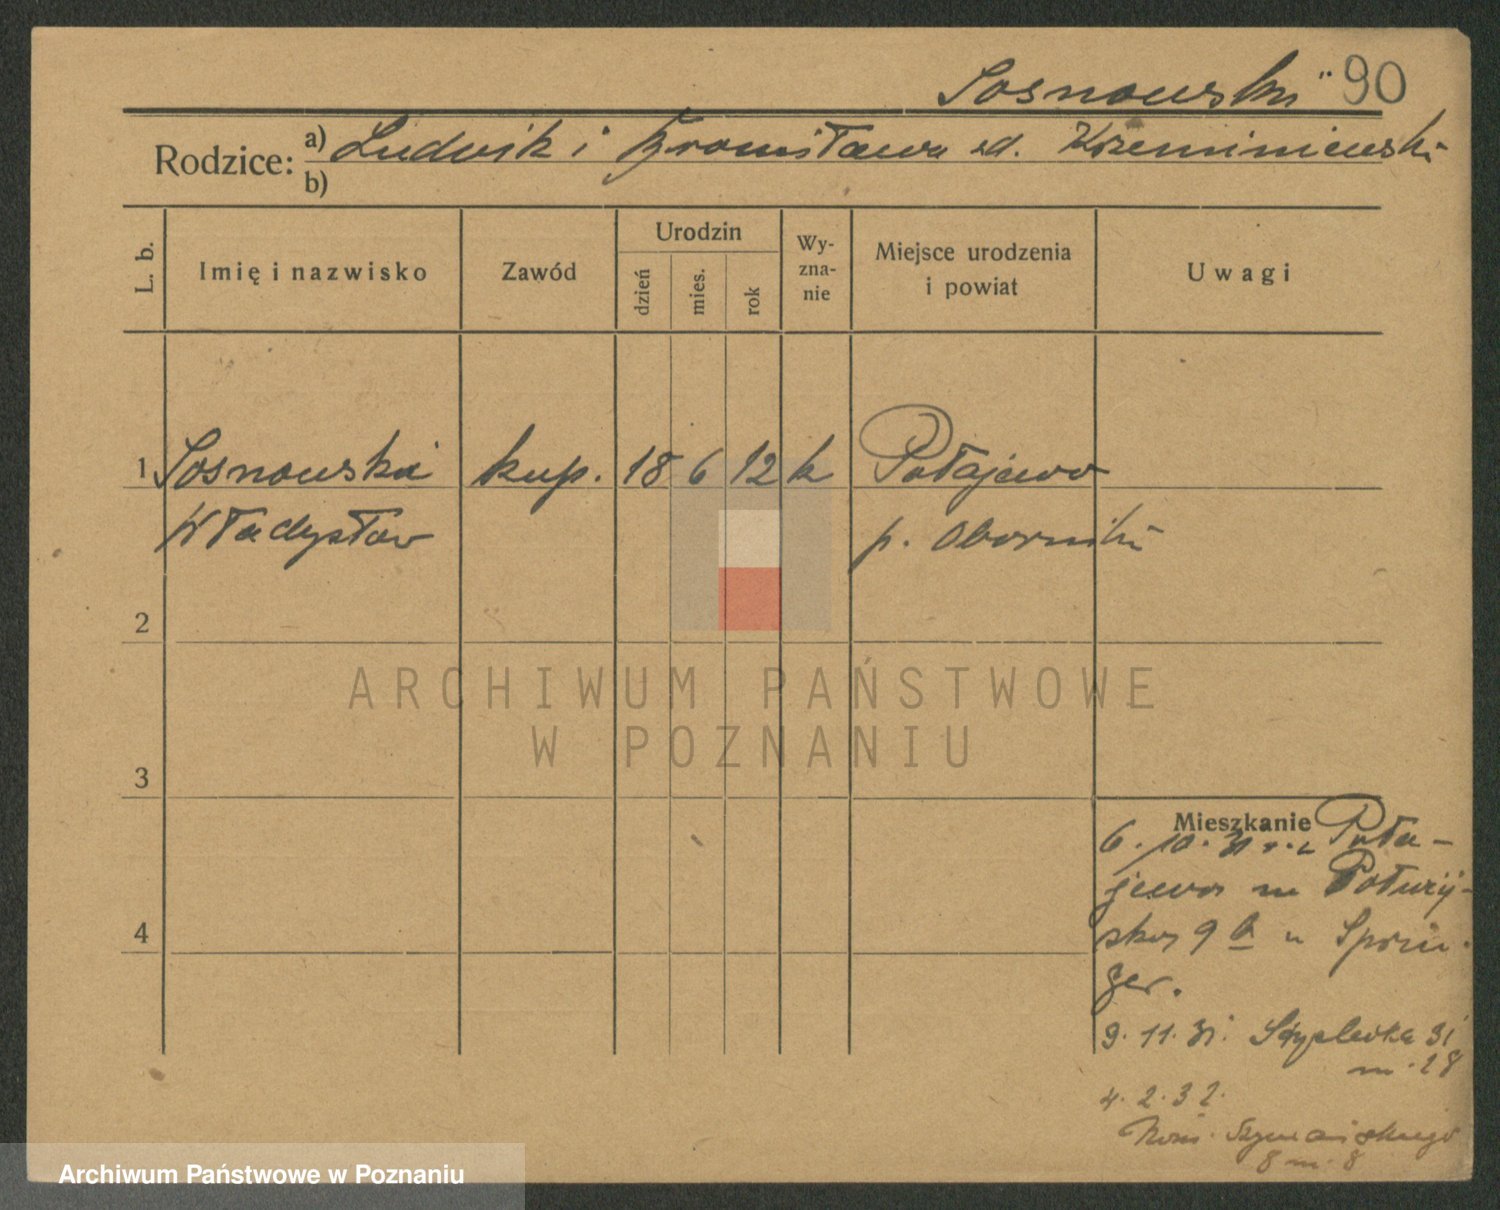 Sosnowski 90
Rodzice: a) Ludwik i Bronisława zd. Krzeminiewski
b)
L. b. Imię i nazwisko Zawód Urodzin dzień mies. rok Wy-zna-nie Miejsce urodzenia i powiat Uwagi
1 Sosnowski kup. 18 6 12 k Połajewo
Władysław p. Oborniki
2
ARCHIWUM PAŃSTWOWE
W POZNANIU
3
Mieszkanie
6. 10. 31 z Poła-
jewo
9 b u Sprin-
ger.
9. 11. 31. 31
m. 28
4. 2. 32.
Szymańskiego
8 m. 8
Archiwum Państwowe w Poznaniu
4